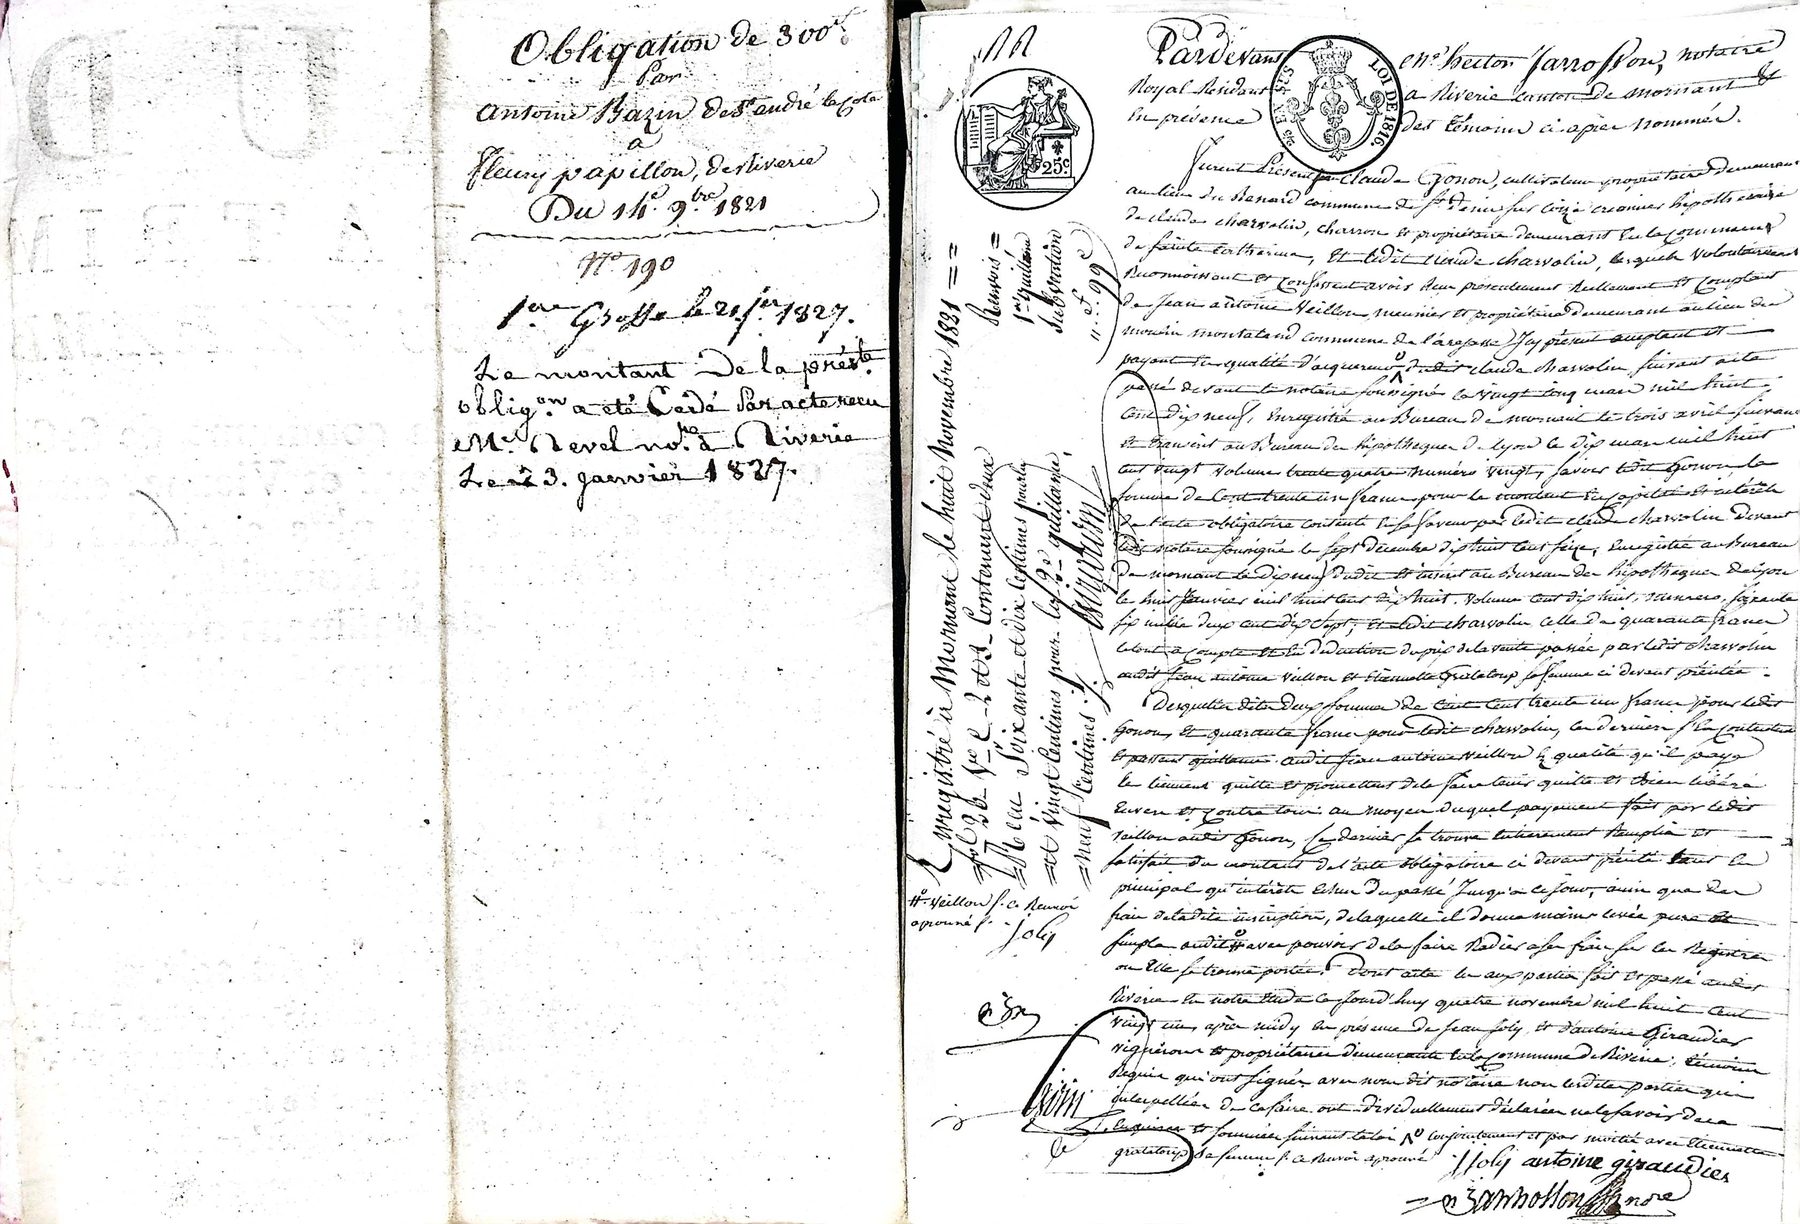 Obligation de 300f.
Par
Antoine Bazin de St andré la Cote
a
fleury papillon, de Riverie
Du 14e. 9bre. 1821
N° 190
1ere Grosse le 21 jer 1827.
Le montant De la préste.
obligon a eté Cédé Par acte recu
Me. Revel nore. à Riverie
Le 23. janvier 1827.
Pardevant me. hector Jarrosson, notaire
Royal Résidant a Riverie canton de mornant &
En présence des témoins ci après nommés.
25c.
25 EN SUS LOI DE 1816.
furent Présents Claude Gonon, cultivateur propriétaire demeurant
au lieu du Renard commune de St. denis sur Coize créancier hipothécaire
de claude charvolin, charron et propriétaire demeurant en la commune
de sainte catherine, et ledit claude charvolin, lesquels volontairement
Reconnoissent et confessent avoir Reçu présentement Réellement et comptant
de jean antoine Veillon, meunier et propriétaire demeurant au lieu du
moulin montaland commune de l'arajasse, Icy présent acceptant et
payant en qualité d'acquereur dudit claude charvolin suivant acte
passé devant le notaire soussigné le vingt cinq mars mil huit
cent dix neuf, enregistré au Bureau de mornant le trois avril suivant
et transcrit au Bureau des hipotheques de lyon le dix mars mil huit
cent vingt volume trente quatre numéro vingt, savoir ledit Gonon la
somme de Cent trente un francs pour le montant en capital et intérêts
de l'acte obligatoire consenti en sa faveur par ledit claude charvolin devant
ledit notaire soussigné le sept décembre dix huit cent seize, enregistré au Bureau
de mornant le dix neuf dudit et inscrit au Bureau des hipotheques de lyon
le huit Janvier mil huit cent dix huit. volume cent dix huit, numéro soixante
six mille deux cent dix sept, et ledit charvolin celle de quarante francs
celont a compte et en déduction du prix de la vente passée par ledit charvolin
audit jean antoine Veillon et Etiennette Grataloup sa femme ci devant précitée.
Desquelles dites deux sommes de Cent trente un francs pour ledit
Gonon, et quarante francs pour ledit charvolin, ces derniers s'en contentent
et passent quittance audit jean antoine Veillon En qualité qu'il paye
le tiennent quitte et promettent de le faire tenir quitte et bien libéré
Envers et contre tous au moyen duquel payement fait par ledit
Veillon audit Gonon, ce dernier se trouve entierement Remplie et
satisfait du montant de l'acte obligatoire ci devant précité tant en
principal qu'intérêts echus du passé Jusqu'a ce jour, ainsi que des
frais de ladite inscription, de laquelle il donne main levée pure et
simple audit # avec pouvoir de la faire Radier a ses frais sur les Registres
ou Elle se trouve portée. Dont acte lu aux parties fait et passé audit
Riverie En notre Etude ce jourd'huy quatre novembre mil huit cent
vingt un, après midy En présence de jean joly et d'antoine Giraudier
vignerons et propriétaires demeurants en la commune de Riverie, témoins
Requis qui ont signés avec nous dit notaire non lesdites parties qui
interpellées de ce faire ont dividuellement déclarées ne le savoir de ce
Enquises et sommées suivant la loi conjointement et par moitié avec Etiennette
grataloup sa femme /. ce Renvoi aprouvé
J Joly antoine giraudier
Jarrosson nore
Enregistré à Mornant le huit Novembre 1821 ==
fol. 36 Vo. C. 2 et 3. Contenant deux
Renvois =
1r. quittance
subrogation
f. 99c
= Reçu Soixante et dix centimes pour la
et vingt Centimes pour la quittance,
neuf Centimes /.
#. Veillon /. Ce Renvoi
aprouvé /. Joly